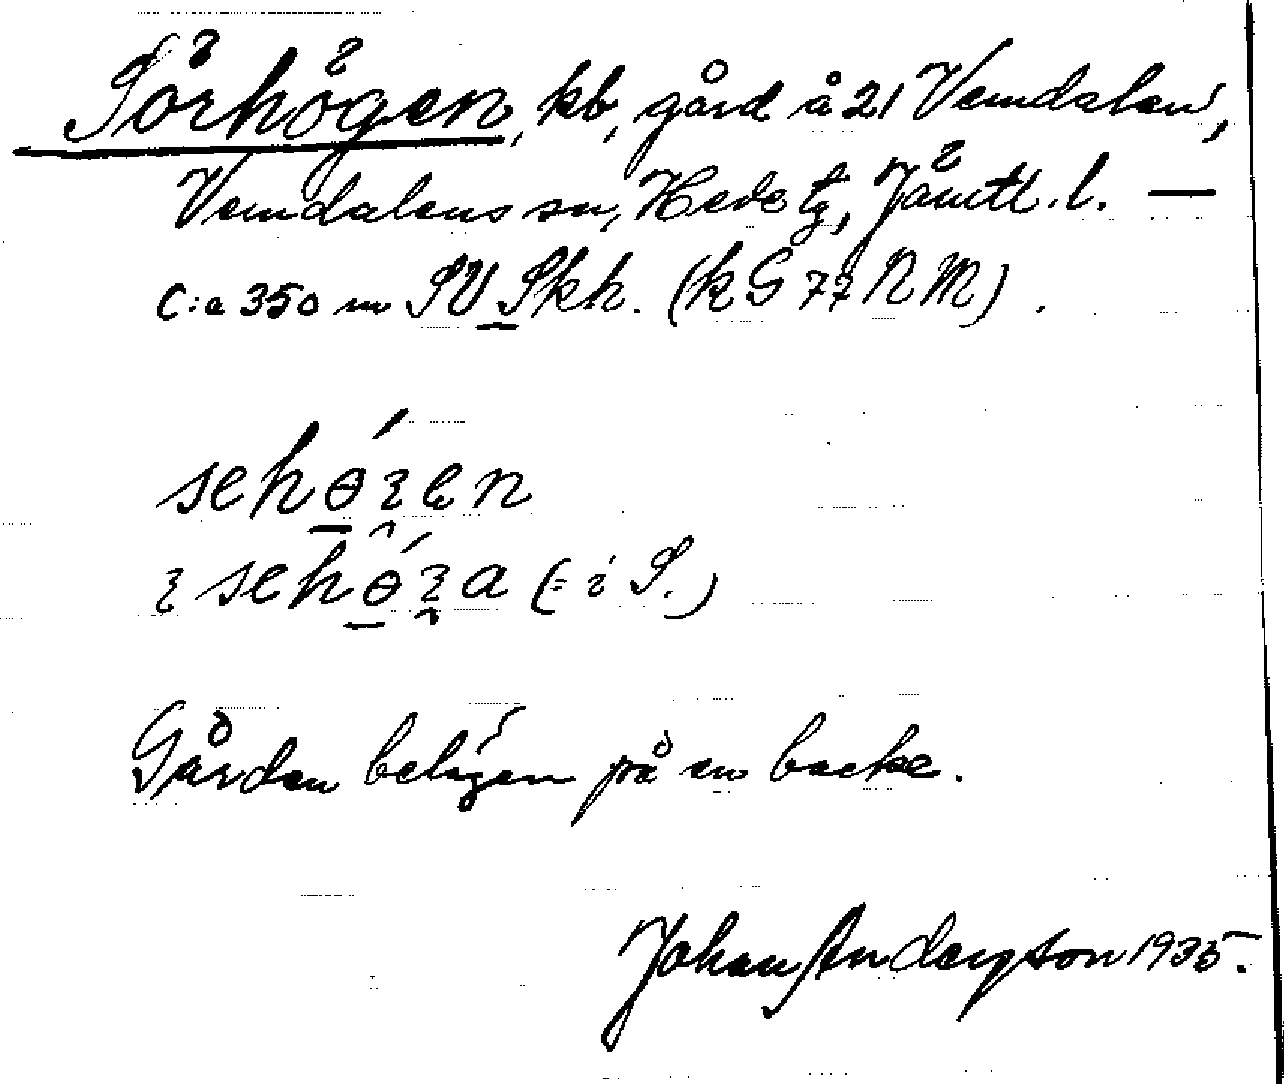 Sörhögen, kb, gård å 21 Vemdalen,
Vemdalens sn, Hede tg, Jämtl. l. —
C:a 350 m SV Skh. (k G 77 N M).
sehөʹɀen
ɀ sehөʹɀa (= i S.)
Gården belägen på en backe.
Johan Anderson 1935.